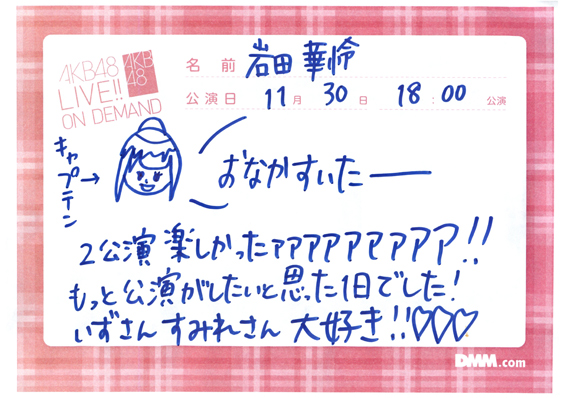 AKB48
LIVE!!
ON DEMAND
AKB
48
名前 岩田華怜
公演日 11月 30日 18:00 公演
キャプテン→
おなかすいたー
2公演 楽しかったァァァァァァァァァ!!
もっと公演がしたいと思った1日でした!
いずさん すみれさん 大好き!!♡♡♡
DMM.com